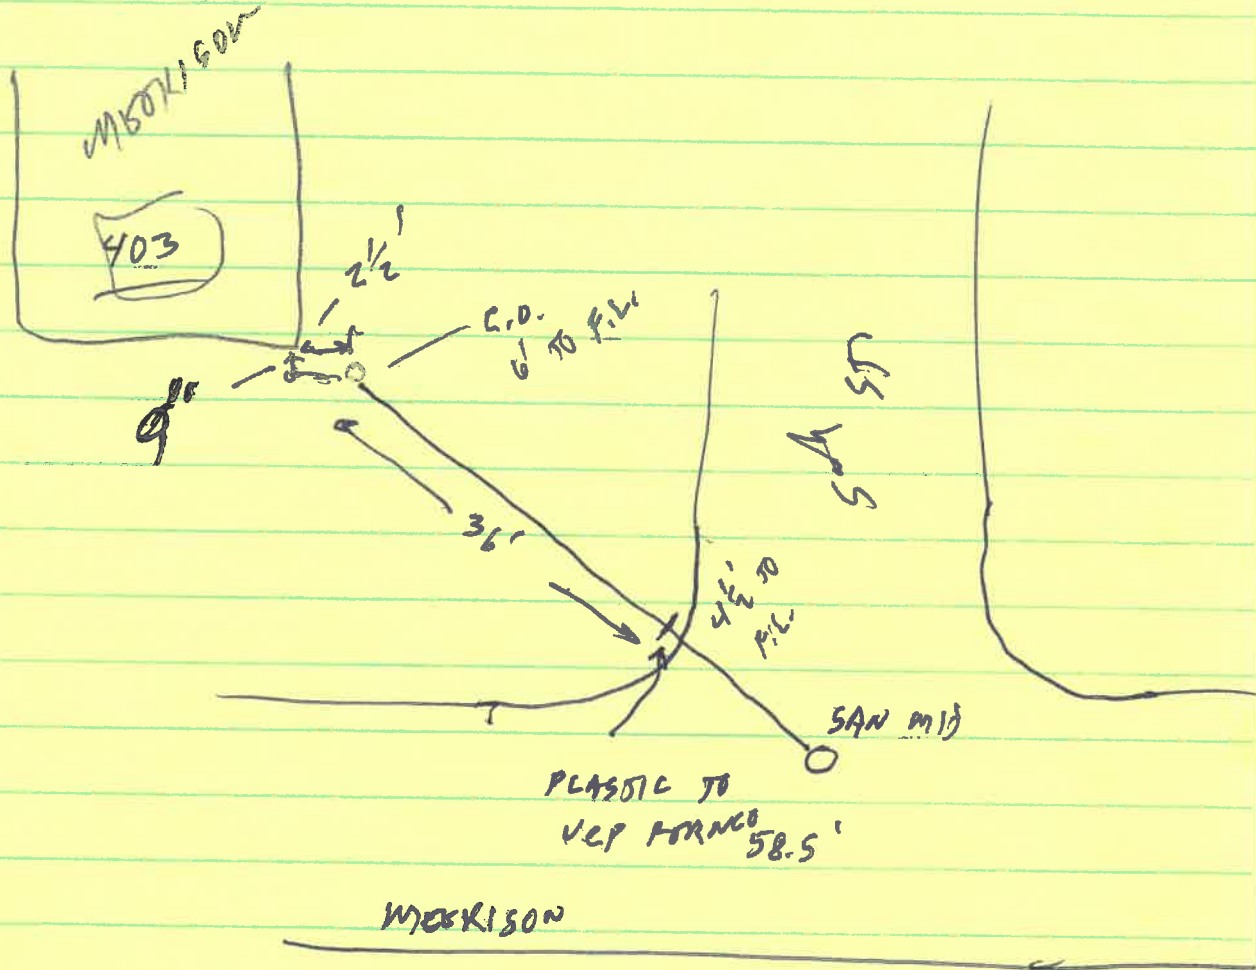 MORRISON
403
2 1/2'
C.O.
6' TO F.L.
9"
36'
5th ST
4 1/2' TO
F.L.
SAN MH
PLASTIC TO
VCP FERNCO
58.5'
MORRISON